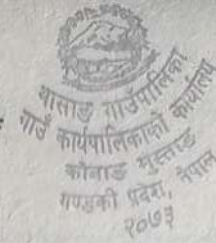 थासाङ गाउँपालिका
गाउँ कार्यपालिकाको कार्यालय
कोबाङ मुस्ताङ
गण्डकी प्रदेश, नेपाल
२०७३